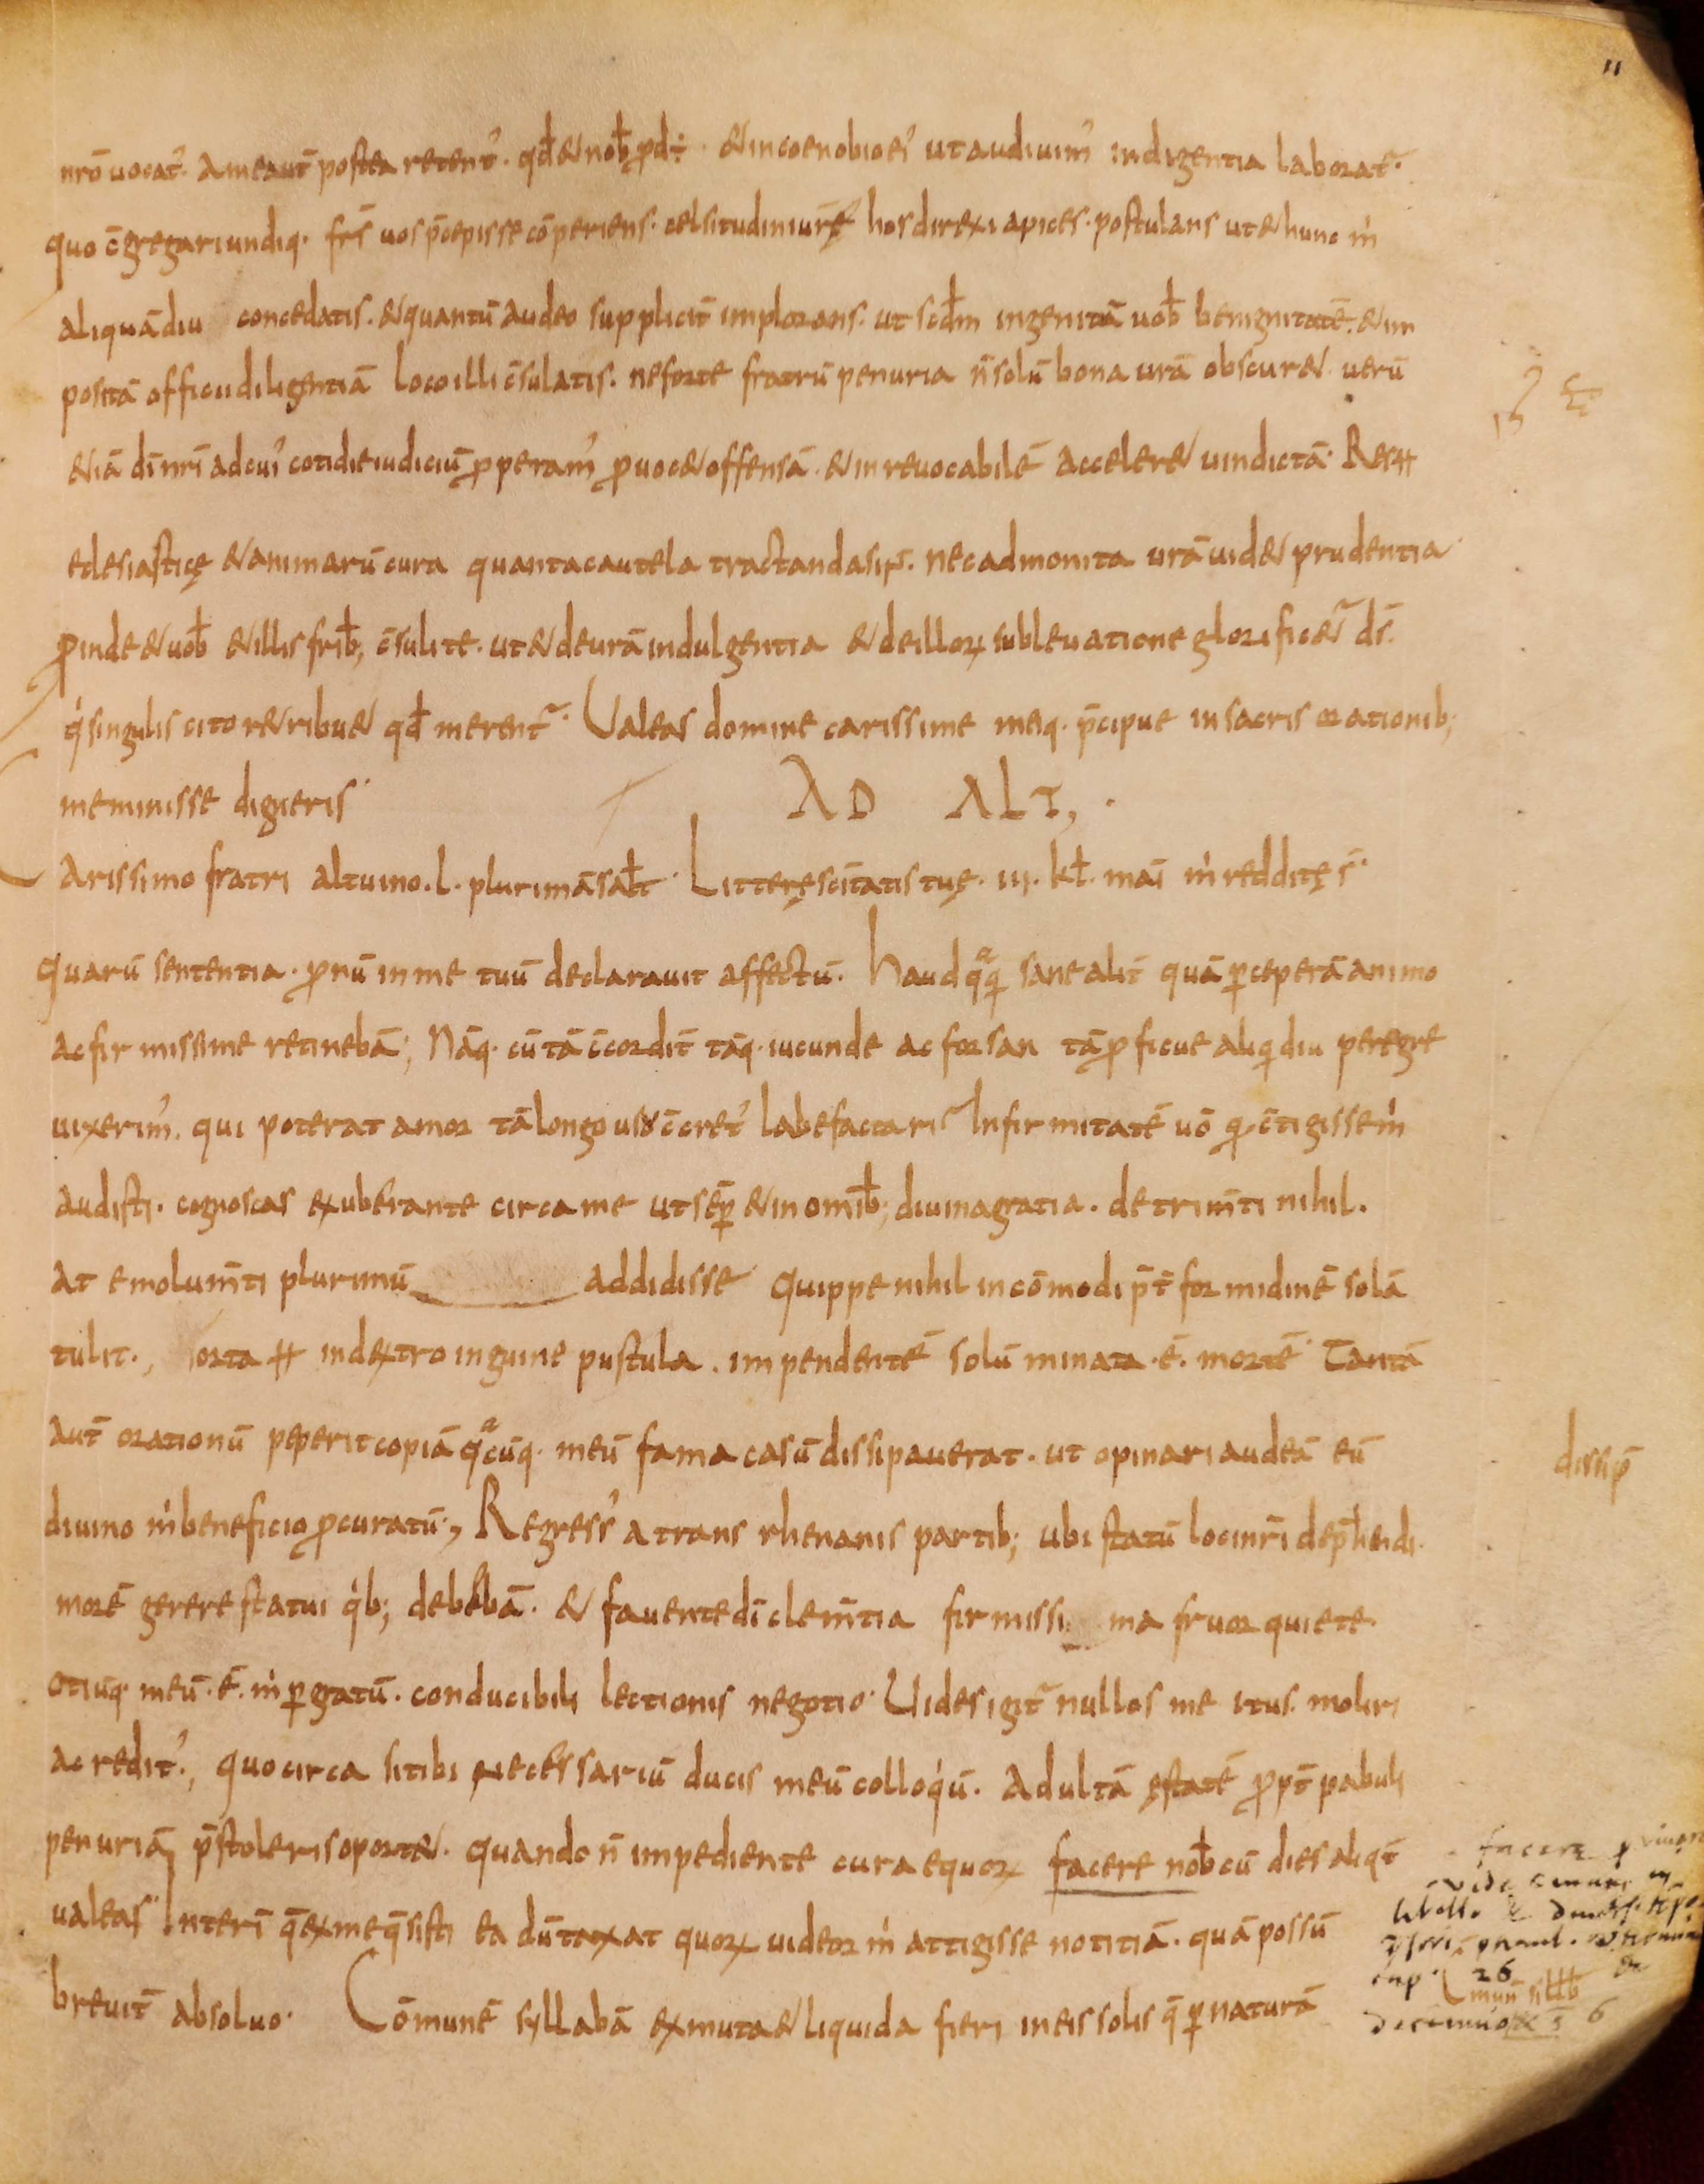 11
nr̄o uocat᾽. A me aut̄ postea retent᾽. qđ & nob̄ ꝓd÷. & in coenobio ei᾽ ut audiuim᾽ indigentia laborat᷑.
quo c̄gregari undiq· fr̄s uos p̄cepisse cōperiens. celsitudini ur̄ę hos direxi apices. postulans ut & hunc m̍
aliquādiu concedatis. & quantū audeo supplicit̄ implorans. ut scđm ingenitā uob̄ benignitatē. & im
positā officii diligentiā loco illi c̄sulatis. ne forte fratrū penuria n̄ solū bona urā obscur& uerū
&iā dī nr̄i ad cui᾽ cotidie iudiciū ꝓperam᾽ ꝓuoc& offensā. & inreuocabilē acceler& uindictā. Res ħ
eclesiasticę & animarū cura quanta cautela tractanda sit. nec admonita urā uid& prudentia
ꝓinde & uob̄ & illis frib̄; c̄sulite. ut & de urā indulgentia & de illoꝝ subleuatione glorific&᷑ ds̄.
q̍ singulis cito r&ribu& qđ merent᷑. Ualeas domine carissime meiq· p̄cipue in sacris orationib;
meminisse digneris
AD ALT,.
Arissimo fratri altuino. l. plurimā saƚt. Litterę sc̄itatis tuę. iij. kƚ. maī m̍ redditę s̄.
quarū sententia. ꝓnū in me tuū declarauit affectū. haud qᵃꝗ sane alit̄ quā ꝑceperā animo
ac firmissime retinebā; Nāq· cū tā c̄cordit̄ tāq· iucunde ac forsan tā ꝓficue aliꝗdiu peregre
uixerim᾽. qui poterat amor tā longo usu c̄cret᾽ labefactari Infirmitatē uō ꝗ c̄tigisse m̍
audisti. cognoscas exuberante circa me ut sēꝑ & in omīb̄; diuina gratia. detrim̄ti nihil.
at emolum̄ti plurimū addidisse quippe nihil incōmodi p̄t̄ formidinē solā
tulit., orta ħ in dextro inguine pustula. impendentē solū minata .ē. mortē. Tantā
aut̄ orationū peperit copiā qᵃcūq· meū fama casū dissipauerat. ut opinari audeā eū
dissip̄
diuino m̍ beneficio ꝓcuratū., Regress᾽ a trans rhenanis partib; ubi statū loci nr̄i dep̄hendi.
morē gerere statui q̍b; debebā. & fauente dī clem̄tia firmissi ma fruor quiete.
otiūq· meū .ē. m̍ ꝑgratū. conducibili lectionis negotio. Uides igit᷑ nullos me itus moliri
ac redit᾽., quocirca si tibi necessariū ducis meū colloq̍ū. Adultā ęstatē ꝓpt̄ pabuli
penuriā p̄stoleris oport&. quando n̄ impediente cura equoꝝ facere nob̄cū dies aliq̄t
ualeas Interī q̄ ex me q̄sisti ea dūtaxat quoꝝ uideor m̍ attigisse notitiā. quā possū
breuit̄ absoluo. Cōmunē syllabā ex muta & liquida fieri in eis solis q̄ ꝑ naturā
cap. 26